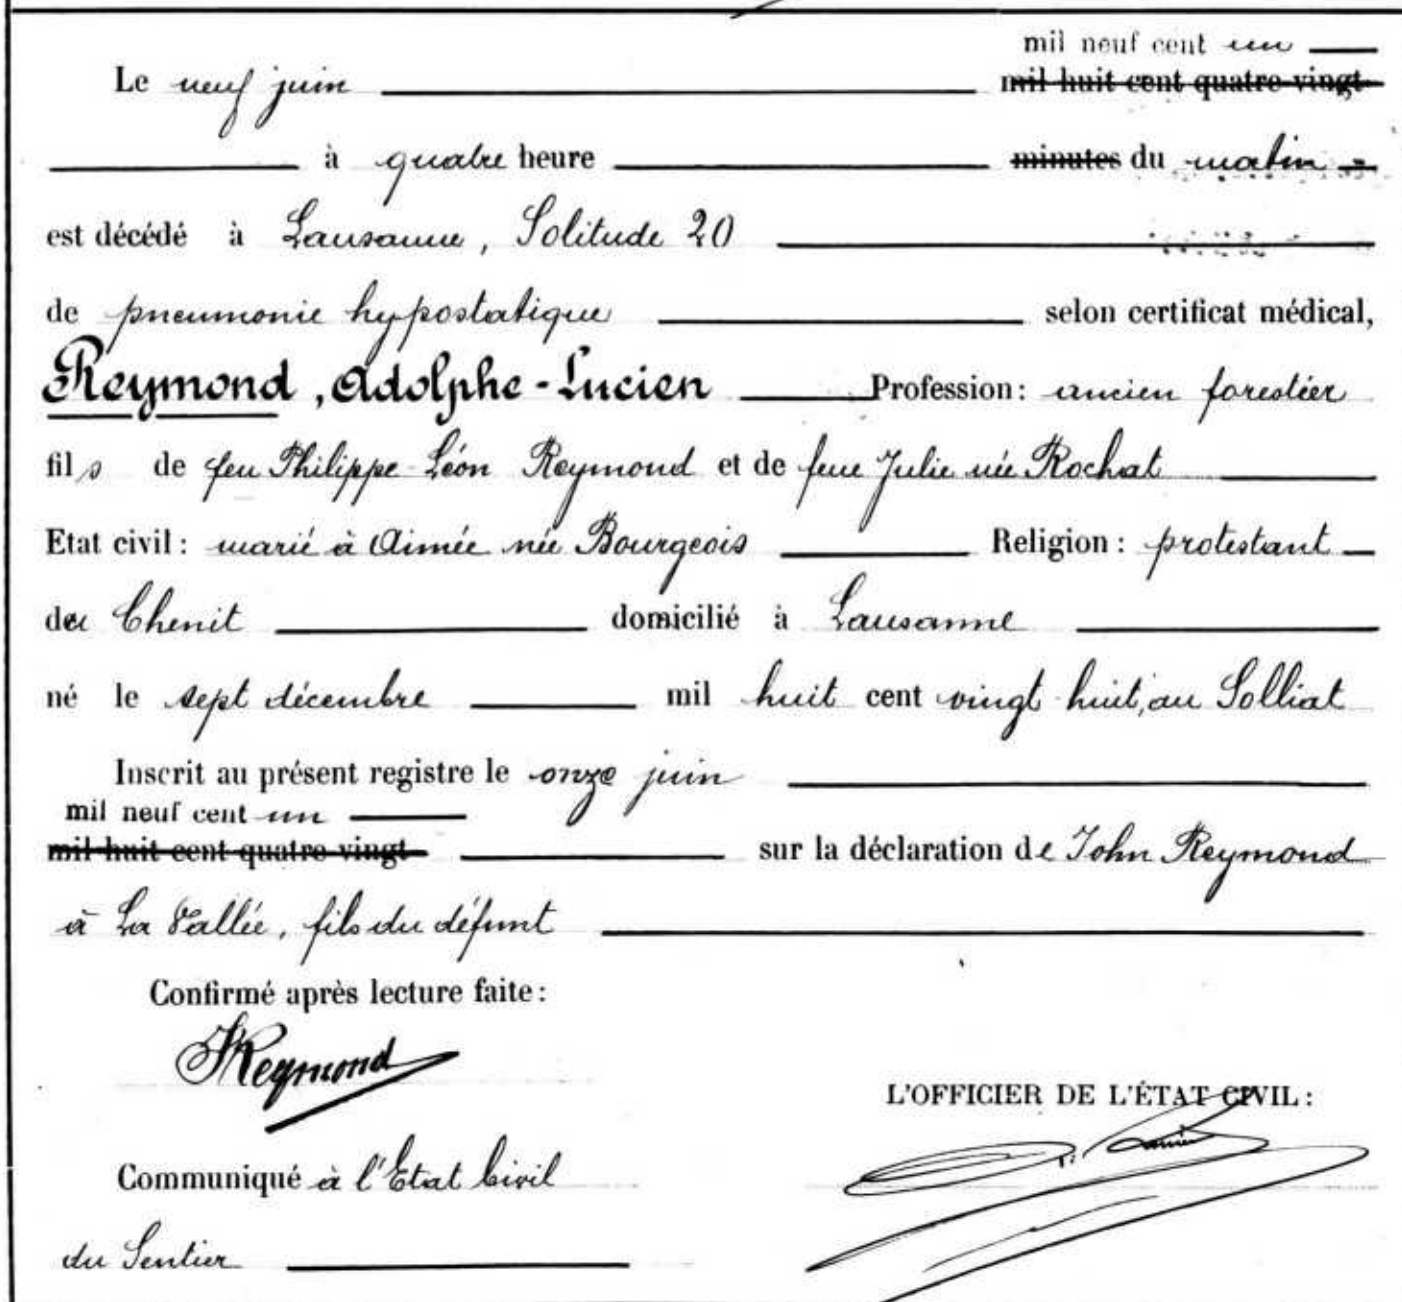 mil neuf cent un
Le neuf juin mil huit cent quatre-vingt
à quatre heure minutes du matin
est décédé à Lausanne, Solitude 20
de pneumonie hypostatique selon certificat médical,
Reymond, Adolphe-Lucien Profession: ancien forestier
fils de feu Philippe Léon Reymond et de feue Julie née Rochat
Etat civil: marié à Aimée née Bourgeois Religion: protestant
du Chenit domicilié à Lausanne
né le sept décembre mil huit cent vingt huit, au Solliat
Inscrit au présent registre le onze juin
mil neuf cent un
mil huit cent quatre-vingt sur la déclaration de John Reymond
à La Vallée, fils du défunt
Confirmé après lecture faite:
JReymond
L'OFFICIER DE L'ÉTAT CIVIL:
Communiqué à l'Etat Civil
du Sentier